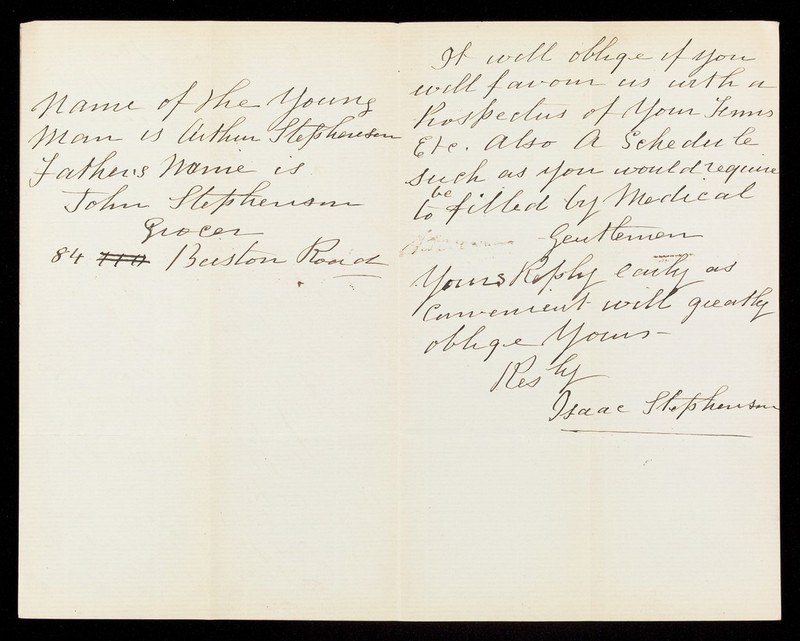 Name of the Young
Man is Arthur Stephenson
Fathers Name is
John Stephenson
Grocer
84 Beiston Road
It will oblige if you
will favour us with a
Prospectus of Your Terms
Etc. Also A Schedule
such as you would require
be
to filled by Medical
Gentlemen
Yours Reply early as
convenient will greatly
oblige Yours
Resly
Isaac Stephenson